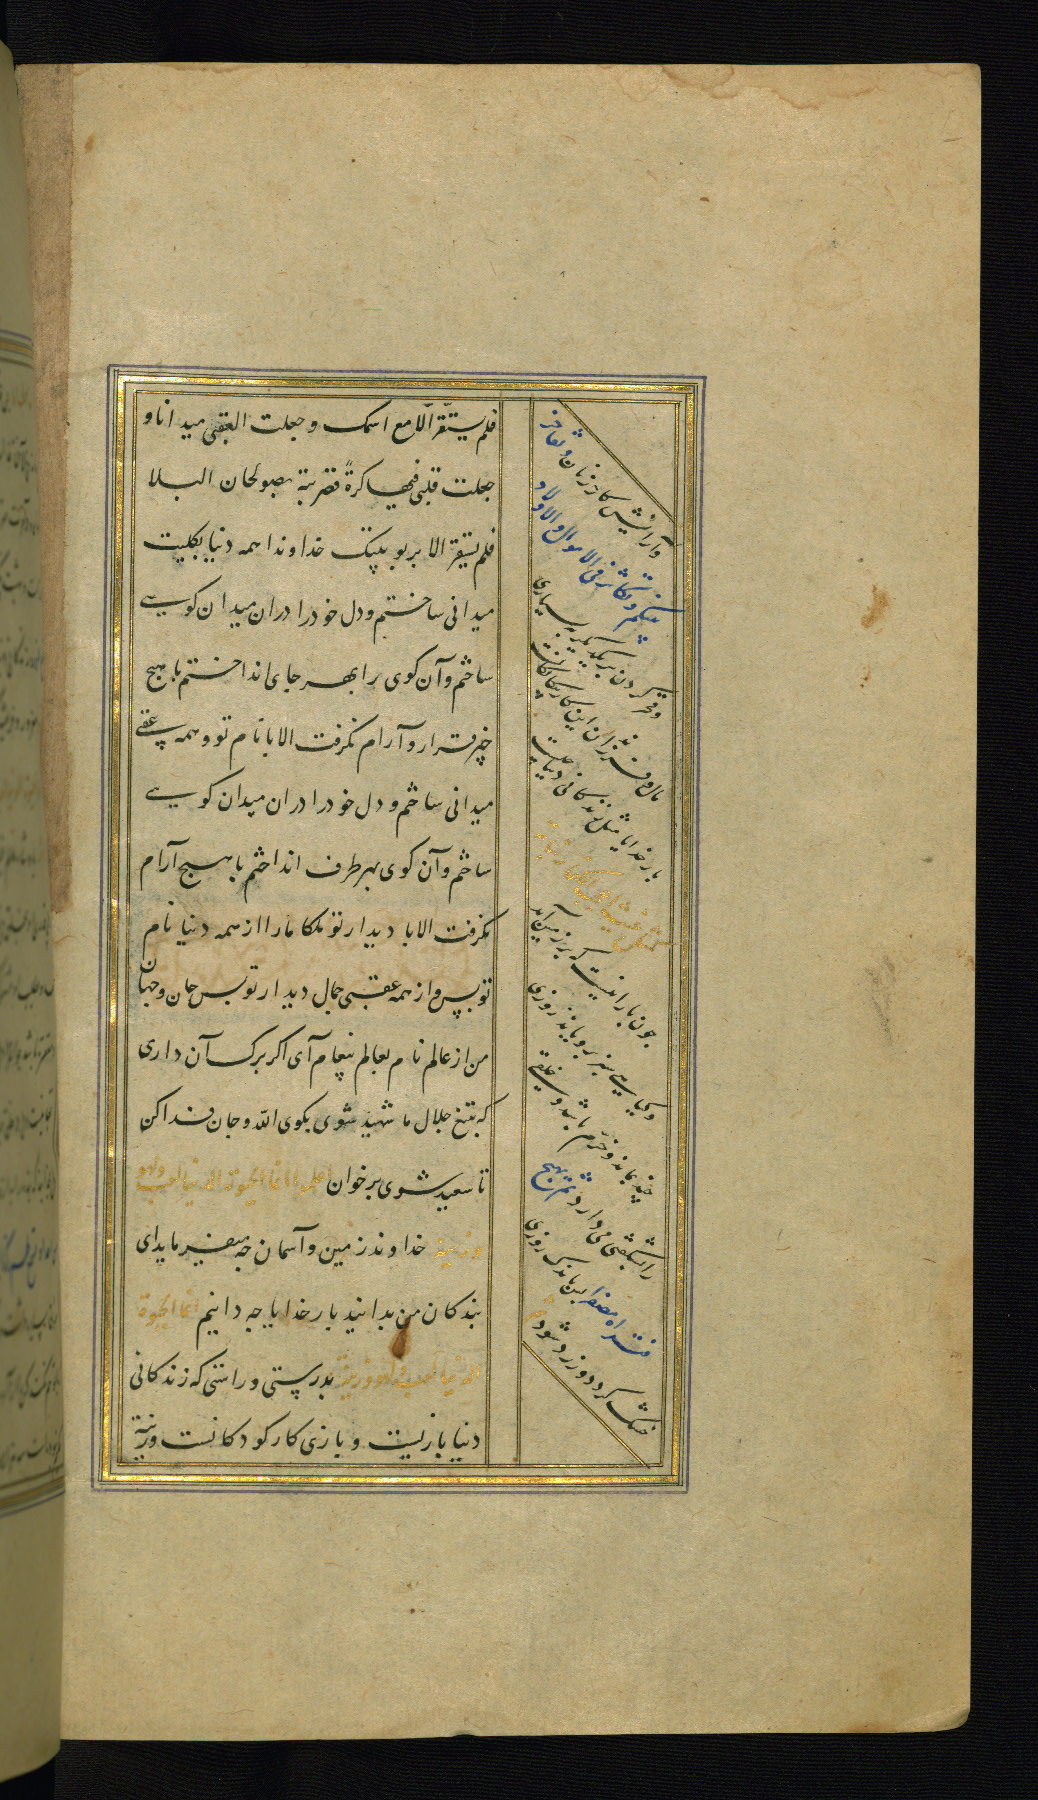 فلم یستقر الا مع اسمک و جعلت العقبی میدانا و
جعلت قلبی فیها کرة فضربته بصولجان البلا
فلم یستقر الا بربوبیتک خداوندا همه دنیا بکلیت
میدانی ساختم و دل خود را دران میدان کویی
ساختم و آن کوی را بهر جای انداختم با هیچ
چیز قرار و آرام نکرفت الا با نام تو و همه عقبی
میدانی ساختم و دل خود را دران میدان کویی
ساختم و آن کوی بهر طرف انداختم با هیچ آرام
نکرفت الا با دیدار تو ملکا ما را از همه دنیا نام
تو بس و از همه عقبی جمال دیدار تو بس جان و جهان
من از عالم نام بعالم پیغام آی اکر برک آن داری
که بتیغ جلال ما شهید شوی بکوی الله و جان فدا کن
تا سعید شوی برخوان اعلموا انما الحیوة الدنیا لعب و لهو
و زینة خداوند زمین و آسمان چه میفرماید ای
بندکان من بدانید بار خدایا چه دانیم انما الحیوة
الدنیا لعب و لهو و زینة بدرستی و راستی که زندکانی
دنیا بازیست و بازی کار کودکانست و زینة
و آرایش کار زنان و تفاخر
بینکم و تکاثر فی الاموال و الاولاد
و فخر کردن بر یکدیکر به بسیاری
مال و فرزندان این کار
بار خدایا مثل زندکانی دنیا چیست
کمثل غیث اعجب الکفار نباته
چون بارانیست که بر زمین آید
و کیاهی سبز برویاند روزی
چند بماند و خرم باشد و خلقی
را شکفتی می دارد ثم یهیج
فتراه مصفرا پس باندک روزی
خشک کردد و زرد شود